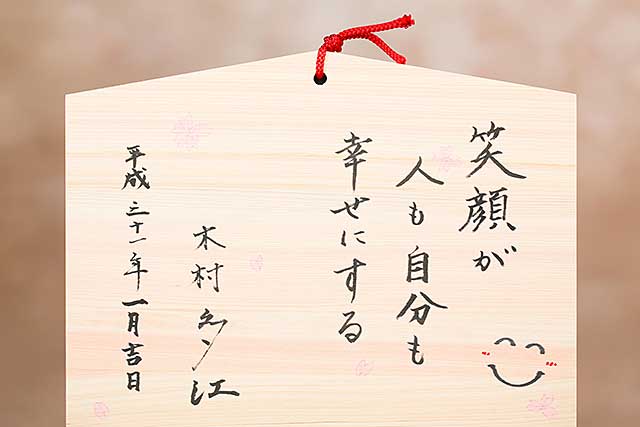 笑顔が
人も自分も
幸せにする
木村
平成三十一年一月吉日